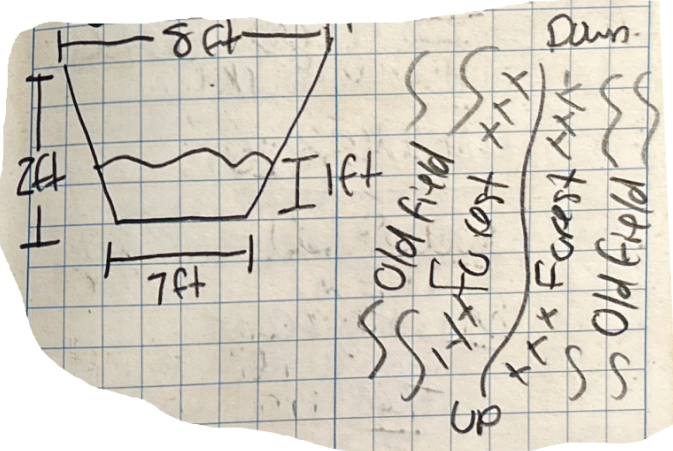 8ft
2ft
1ft
7ft
Down
Old field
Forest
Forest
Old field
UP